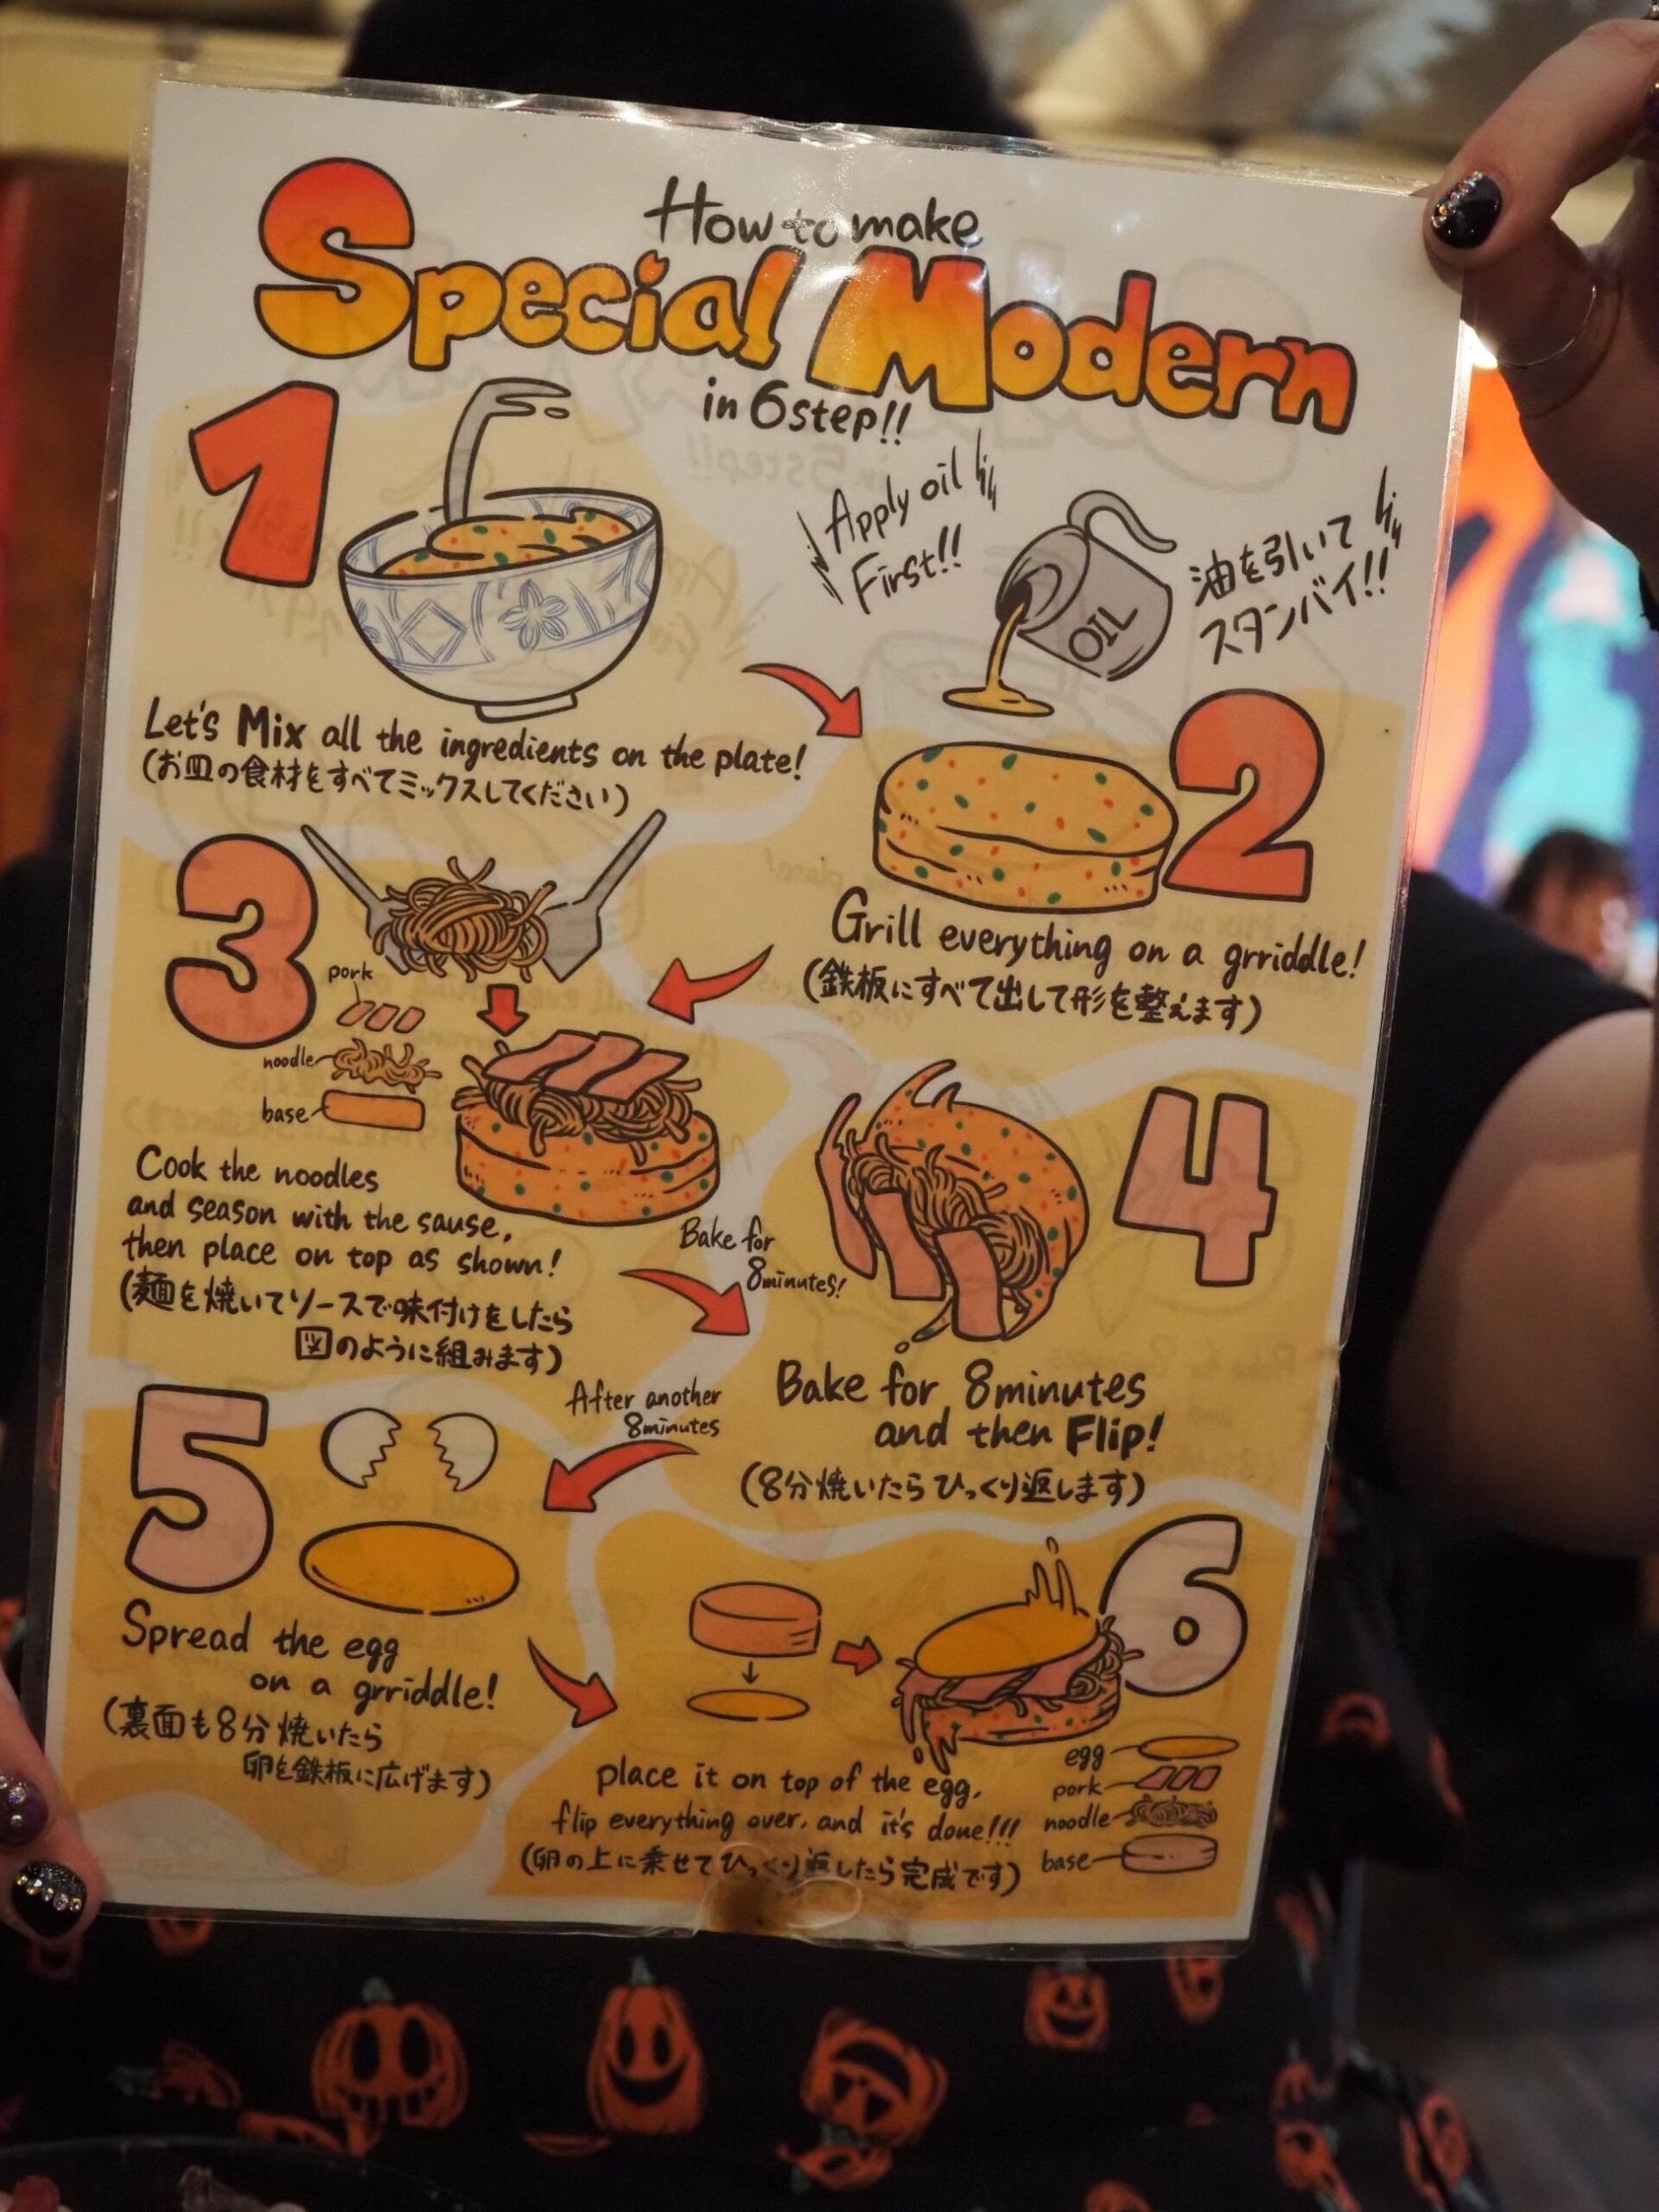 How to make
Special Modern
in 6step!!
1
Apply oil
First!!
OIL
油を引いて
スタンバイ!!
Let's Mix all the ingredients on the plate!
(お皿の食材をすべてミックスしてください)
2
Grill everything on a grriddle!
(鉄板にすべて出して形を整えます)
3
pork
noodle
base
Cook the noodles
and season with the sause,
then place on top as shown!
(麺を焼いてソースで味付けをしたら
図のように組みます)
Bake for
8minutes!
4
Bake for 8minutes
and then Flip!
(8分焼いたらひっくり返します)
After another
8minutes
5
Spread the egg
on a grriddle!
(裏面も8分焼いたら
卵を鉄板に広げます)
6
place it on top of the egg,
flip everything over, and it's done!!!
(卵の上に乗せてひっくり返したら完成です)
egg
pork
noodle
base